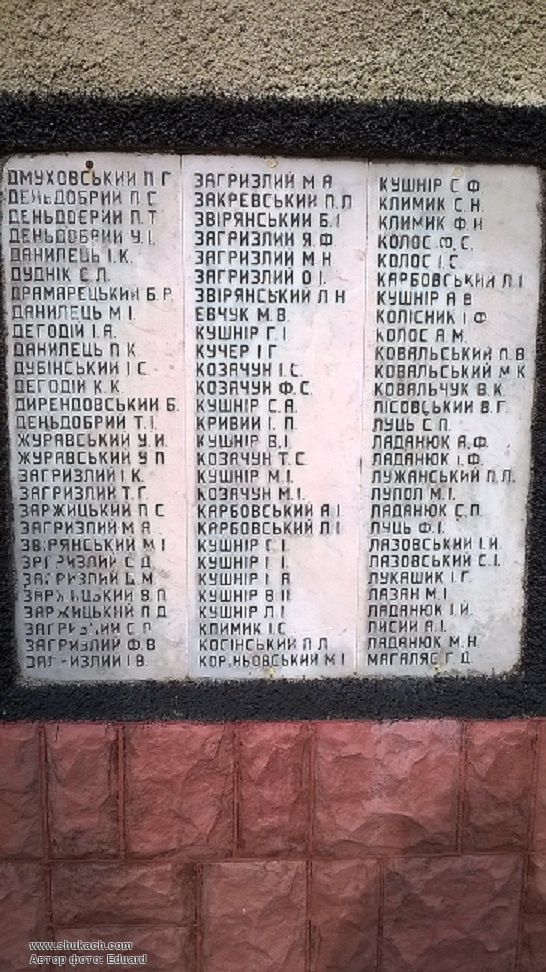 ДМУХОВСЬКИЙ П Г
ДЕНЬДОБРИЙ П.С
ДЕНЬДОЄРИЙ П.Т
ДЕНЬДОБРИЙ У.І.
ДАНИЛЕЦЬ І.К.
ДУДНІК Є.Л.
ДРАМАРЕЦЬКИЙ Б.Р.
ДАНИЛЕЦЬ М.І.
ДЕГОДІЙ І.А.
ДАНИЛЕЦЬ П К.
ДУБІНСЬКИЙ І С
ДЕГОДІЙ К.К.
ДИРЕНДОВСЬКИЙ Б.
ДЕНЬДОБРИЙ Т.І.
ЖУРАВСЬКИЙ У.И.
ЖУРАВСЬКИЙ У П
ЗАГРИЗЛИЙ І К.
ЗАГРИЗЛИЙ Т.Г.
ЗАРЖИЦЬКИЙ П С
ЗАГРИЗЛИЙ М А
ЗВІРЯНСЬКИЙ М І
ЗАГРИЗЛИЙ С Д
ЗАГРИЗЛИЙ Б.М.
ЗАРЖИЦЬКИЙ В.П
ЗАРЖИЦЬКИЙ П Д
ЗАГРИЗЛИЙ С Р
ЗАГРИЗЛИЙ Ф.В
ЗАГРИЗЛИЙ І В.
ЗАГРИЗЛИЙ М А
ЗАКРЕВСЬКИЙ П.П
ЗВІРЯНСЬКИЙ Б.І
ЗАГРИЗЛИЙ Я.Ф.
ЗАГРИЗЛИЙ М Н
ЗАГРИЗЛИЙ О І.
ЗВІРЯНСЬКИЙ Л Н
ЕВЧУК М.В.
КУШНІР Г.І
КУЧЕР І Г
КОЗАЧУН І.С.
КОЗАЧУН Ф.С.
КУШНІР С.А.
КРИВИЙ І. П.
КУШНІР В.І
КОЗАЧУН Т.С
КУШНІР М.І.
КОЗАЧУН М.І.
КАРБОВСЬКИЙ А.І
КАРБОВСЬКИЙ Л І
КУШНІР С.І
КУШНІР І І.
КУШНІР І А
КУШНІР В
КУШНІР Л І
КЛИМИК І.С
КОСІНСЬКИЙ П Л
КОРІНЬОВСЬКИЙ М І
КУШНІР С Ф
КЛИМИК С.Н.
КЛИМИК Ф.Н
КОЛОС Ф.С.
КОЛОС І.С
КАРБОВСЬКИЙ Л І
КУШНІР А В
КОЛІСНИК І Ф
КОЛОС А.М.
КОВАЛЬСЬКИЙ П.В
КОВАЛЬСЬКИЙ М К
КОВАЛЬЧУК В.К.
ЛІСОВСЬКИЙ В.Г.
ЛУЦЬ С.П.
ЛАДАНЮК А.Ф.
ЛАДАНЮК І.Ф.
ЛУЖАНСЬКИЙ П.Л.
ЛУПОЛ М.І.
ЛАДАНЮК С.П
ЛУЦЬ Ф.І.
ЛАЗОВСЬКИЙ І.И.
ЛАЗОВСЬКИЙ С.І.
ЛУКАШИК І.Г.
ЛАЗАН М.І
ЛАДАНЮК І.И.
ЛИСИЙ А.І
ЛАДАНЮК М.Н.
МАГАЛЯС Г.Д
www.shukach.com
Автор фото: Eduard